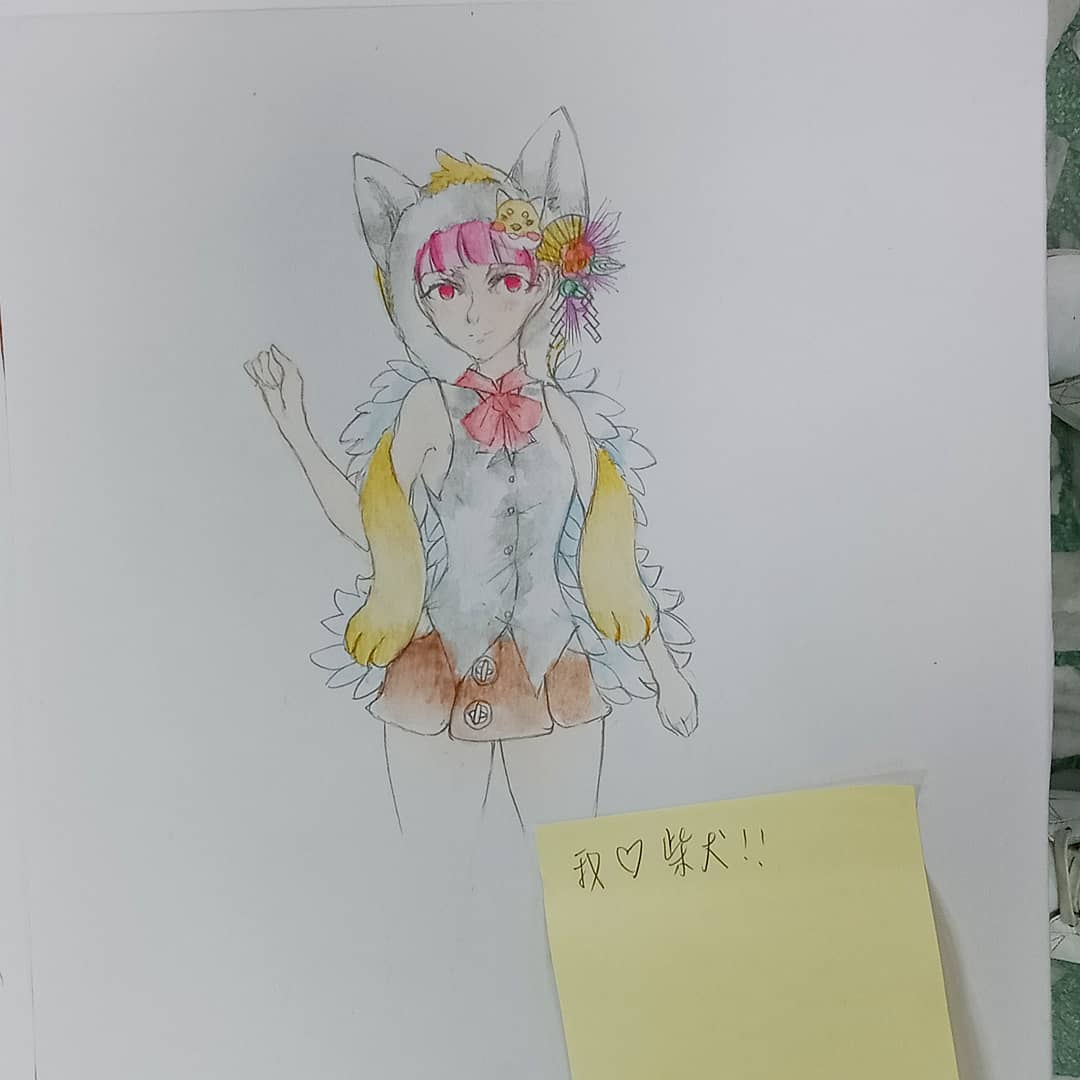 我♡柴犬!!